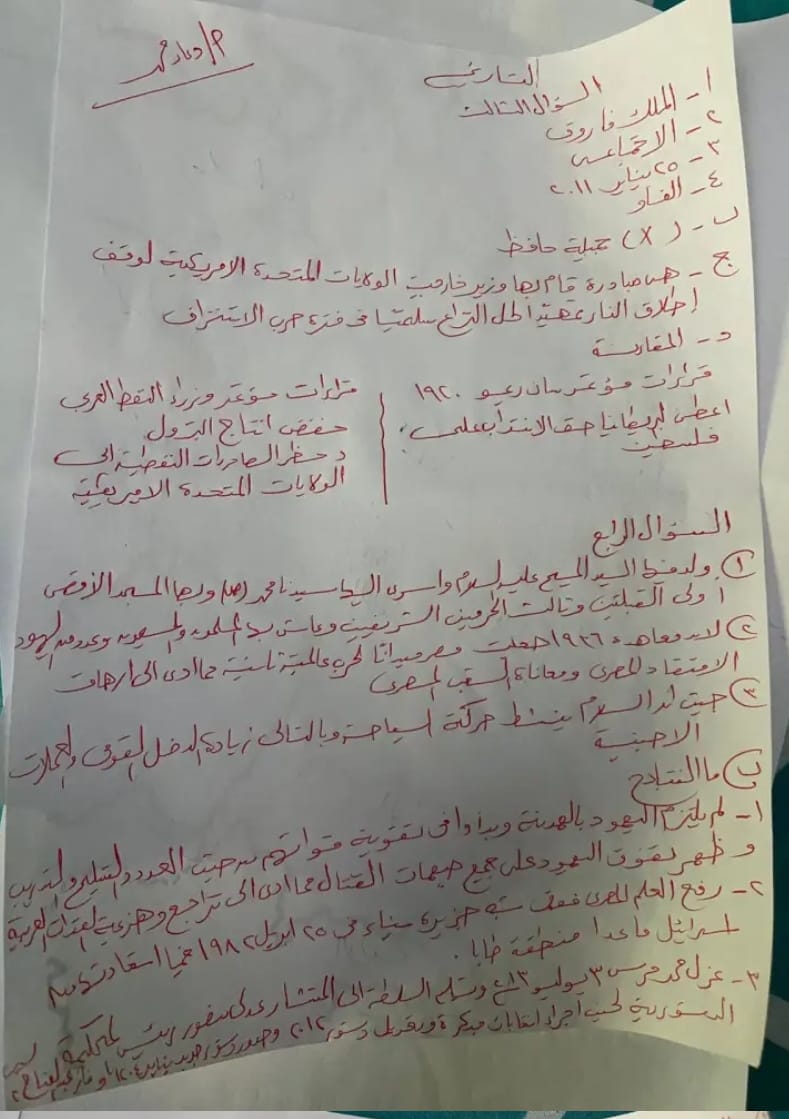 م/ دعاء محمد
التاريخ
السؤال الثالث
١- الملك فاروق
٢- الاجتماعى
٣- ٢٥ يناير ٢٠١١
٤- الفاو
ب- (X) جميلة حافظ
ج- هى مبادرة قام بها وزير خارجية الولايات المتحدة الامريكية لوقف
إطلاق النار تمهيدا لحل النزاع سلميا فى فترة حرب الاستنزاف
د- المقارنة
قرارات مؤتمر سان ريمو ١٩٢٠
اعطى لبريطانيا حق الانتداب على
فلسطين
قرارات مؤتمر وزراء النفط العرب
خفض انتاج البترول
وحظر الصادرات النفطية الى
الولايات المتحدة الامريكية
السؤال الرابع
① ولد فيها السيد المسيح عليه السلام واسرى اليها سيدنا محمد (ص) وبها المسجد الأقصى
أولى القبلتين وثالث الحرمين الشريفين وعاش بها المسلمون والمسيحيون وعدد من اليهود
② لان معاهدة ١٩٣٦ جعلت مصر ميدانا لحرب عالمية ثانية مما ادى الى ارهاق
الاقتصاد المصرى ومعاناة الشعب المصرى
③ حيث ان السلام ينشط حركة السياحة وبالتالى زيادة الدخل القومى والعملات
الاجنبية
ب) ما النتائج
١- لم يلتزم اليهود بالهدنة وبدأوا فى تقوية قواتهم من حيث العدد والتسليح والتدريب
وظهر تفوق اليهود على جميع جبهات القتال مما ادى الى تراجع وهزيمة القوات العربية
٢- رفع العلم المصرى فوق شبه جزيرة سيناء فى ٢٥ ابريل ١٩٨٢ فيما استعادتها من
اسرائيل ما عدا منطقة طابا.
٣- عزل محمد مرسى ٣ يوليو ٢٠١٣ وتسلم السلطة الى المستشار عدلى منصور رئيس المحكمة
الدستورية لحين اجراء انتخابات مبكرة وتعديل دستور ٢٠١٢ وصدور دستور جديد يناير ٢٠١٤